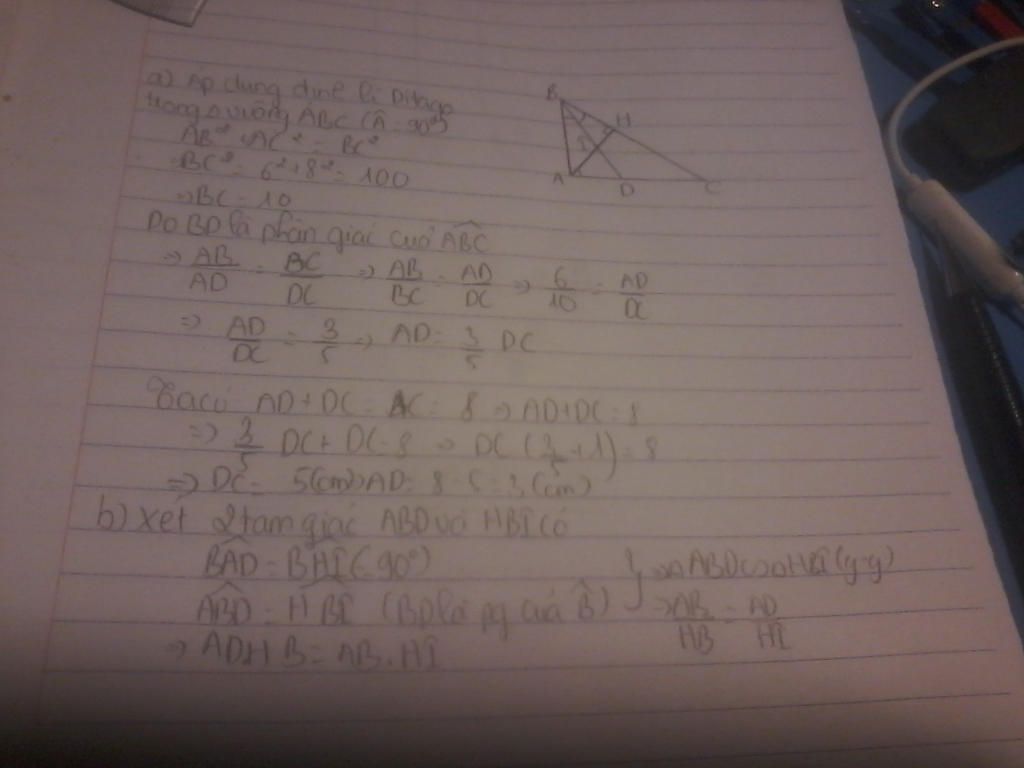 a) Áp dụng định lí Pitago
trong Δ vuông ABC (Â = 90°)
AB² + AC² = BC²
⇒ BC² = 6² + 8² = 100
⇒ BC = 10
Do BD là phân giác của ABC
⇒ AB/AD = BC/DC ⇒ AB/BC = AD/DC ⇒ 6/10 = AD/DC
⇒ AD/DC = 3/5 ⇒ AD = 3/5 DC
Ta có AD + DC = AC = 8 ⇒ AD + DC = 8
⇒ 3/5 DC + DC = 8 ⇒ DC (3/5 + 1) = 8
⇒ DC = 5(cm) AD = 8 - 5 = 3 (cm)
b) Xét 2 tam giác ABD và HBI có
BAD = BHI (= 90°)
ABD = HBI (BD là pg của B̂)
⇒ Δ ABD ∽ Δ HBI (g-g)
⇒ AB/HB = AD/HI
⇒ AD HB = AB . HI
B
H
I
A
D
C